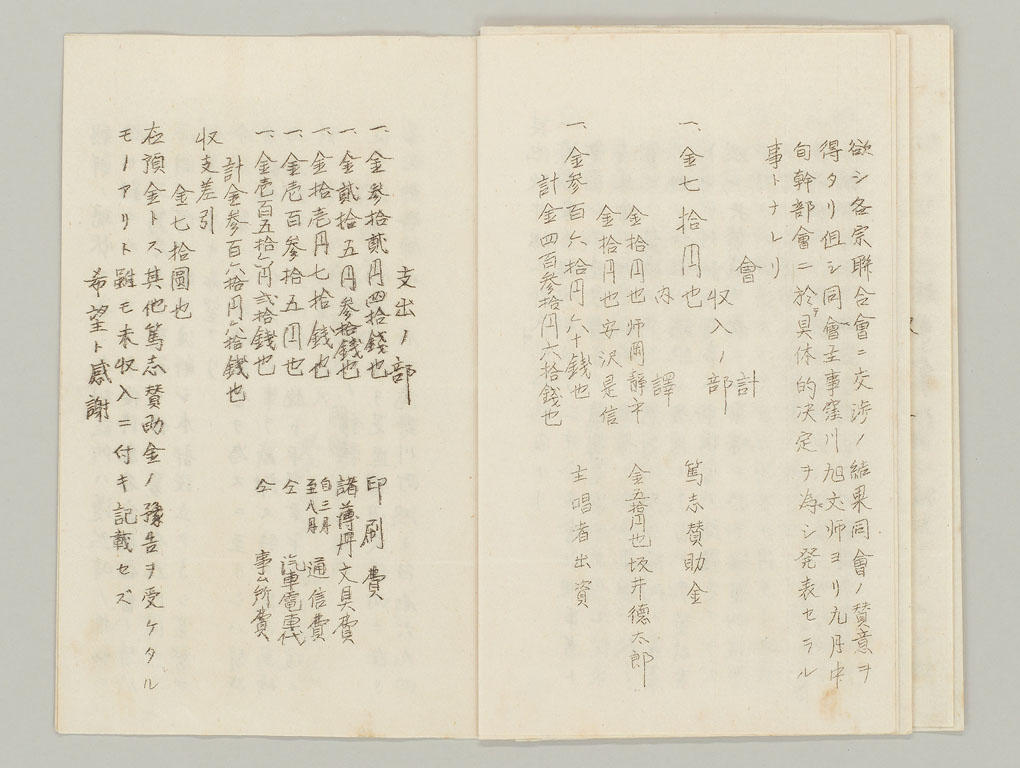 欲シ各宗聯合會ニ交渉ノ結果同會ノ賛意ヲ
得タリ但シ同會主事窪川旭丈師ヨリ九月中
旬幹部會ニ於テ具体的決定ヲ為シ発表セラル
事トナレリ
會計
收入ノ部
一、金七拾円也 篤志賛助金
内譯
金拾円也 師岡靜 金五拾円也 坂井德太郎
金拾円也 安沢是信
一、金参百六拾円六十錢也 主唱者出資
計金四百参拾円六拾錢也
支出ノ部
一、金参拾貳円四拾錢也 印刷費
一、金貳拾五円参拾錢也 諸薄冊文具費
一、金拾壱円七拾錢也 自三月至八月 通信費
一、金壱百参拾五円也 仝 汽車電車代
一、金壱百五拾六円弐拾錢也 仝 事ム所費
計金参百六拾円六拾錢也
収支差引
金七拾圓也
在預金トス其他篤志賛助金ノ豫告ヲ受ケタル
モノアリト雖モ未收入ニ付キ記載セズ
希望ト感謝